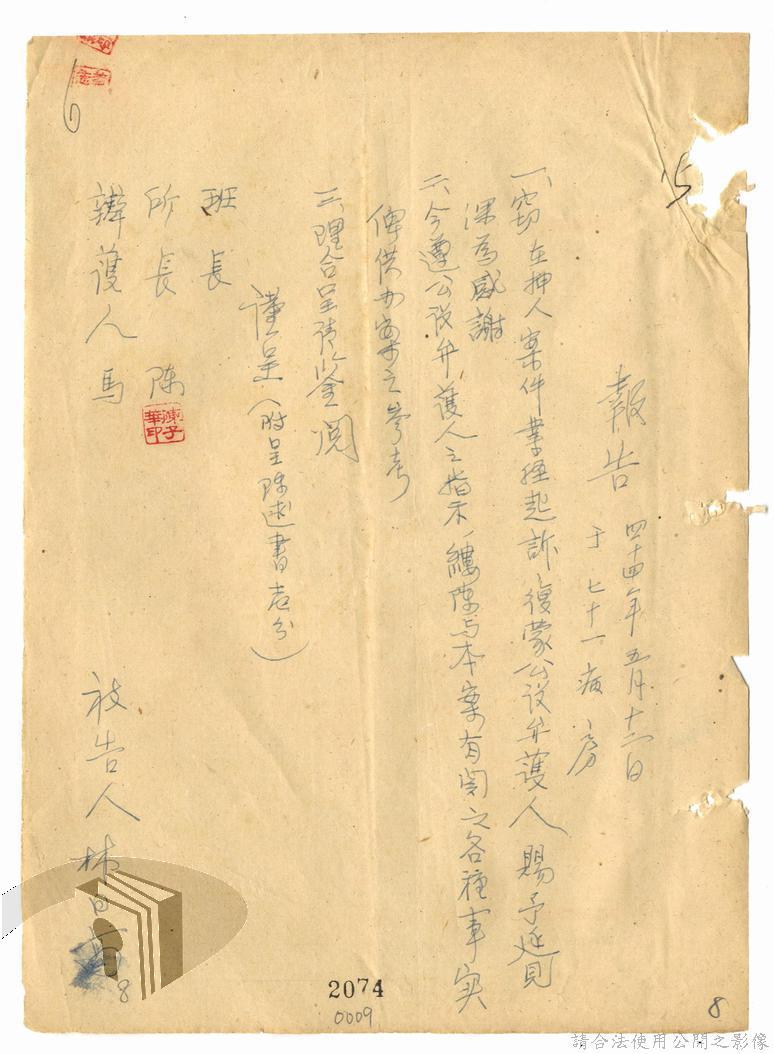 報告 四十四年五月十二日
于七十一病房
一、竊在押人案件業經起訴、復蒙公设弁護人賜予延見
深為感謝
二、今遵公设弁護人之指示、縷陈与本案有関之各種事实
俾供办案之參考
三、理合呈请鉴阅
謹呈（附呈陈述書壱份）
班長
所長 陈
陳子華印
辯護人 馬
被告人 林日
6
15
8
2074
0009
8
請合法使用公開之影像